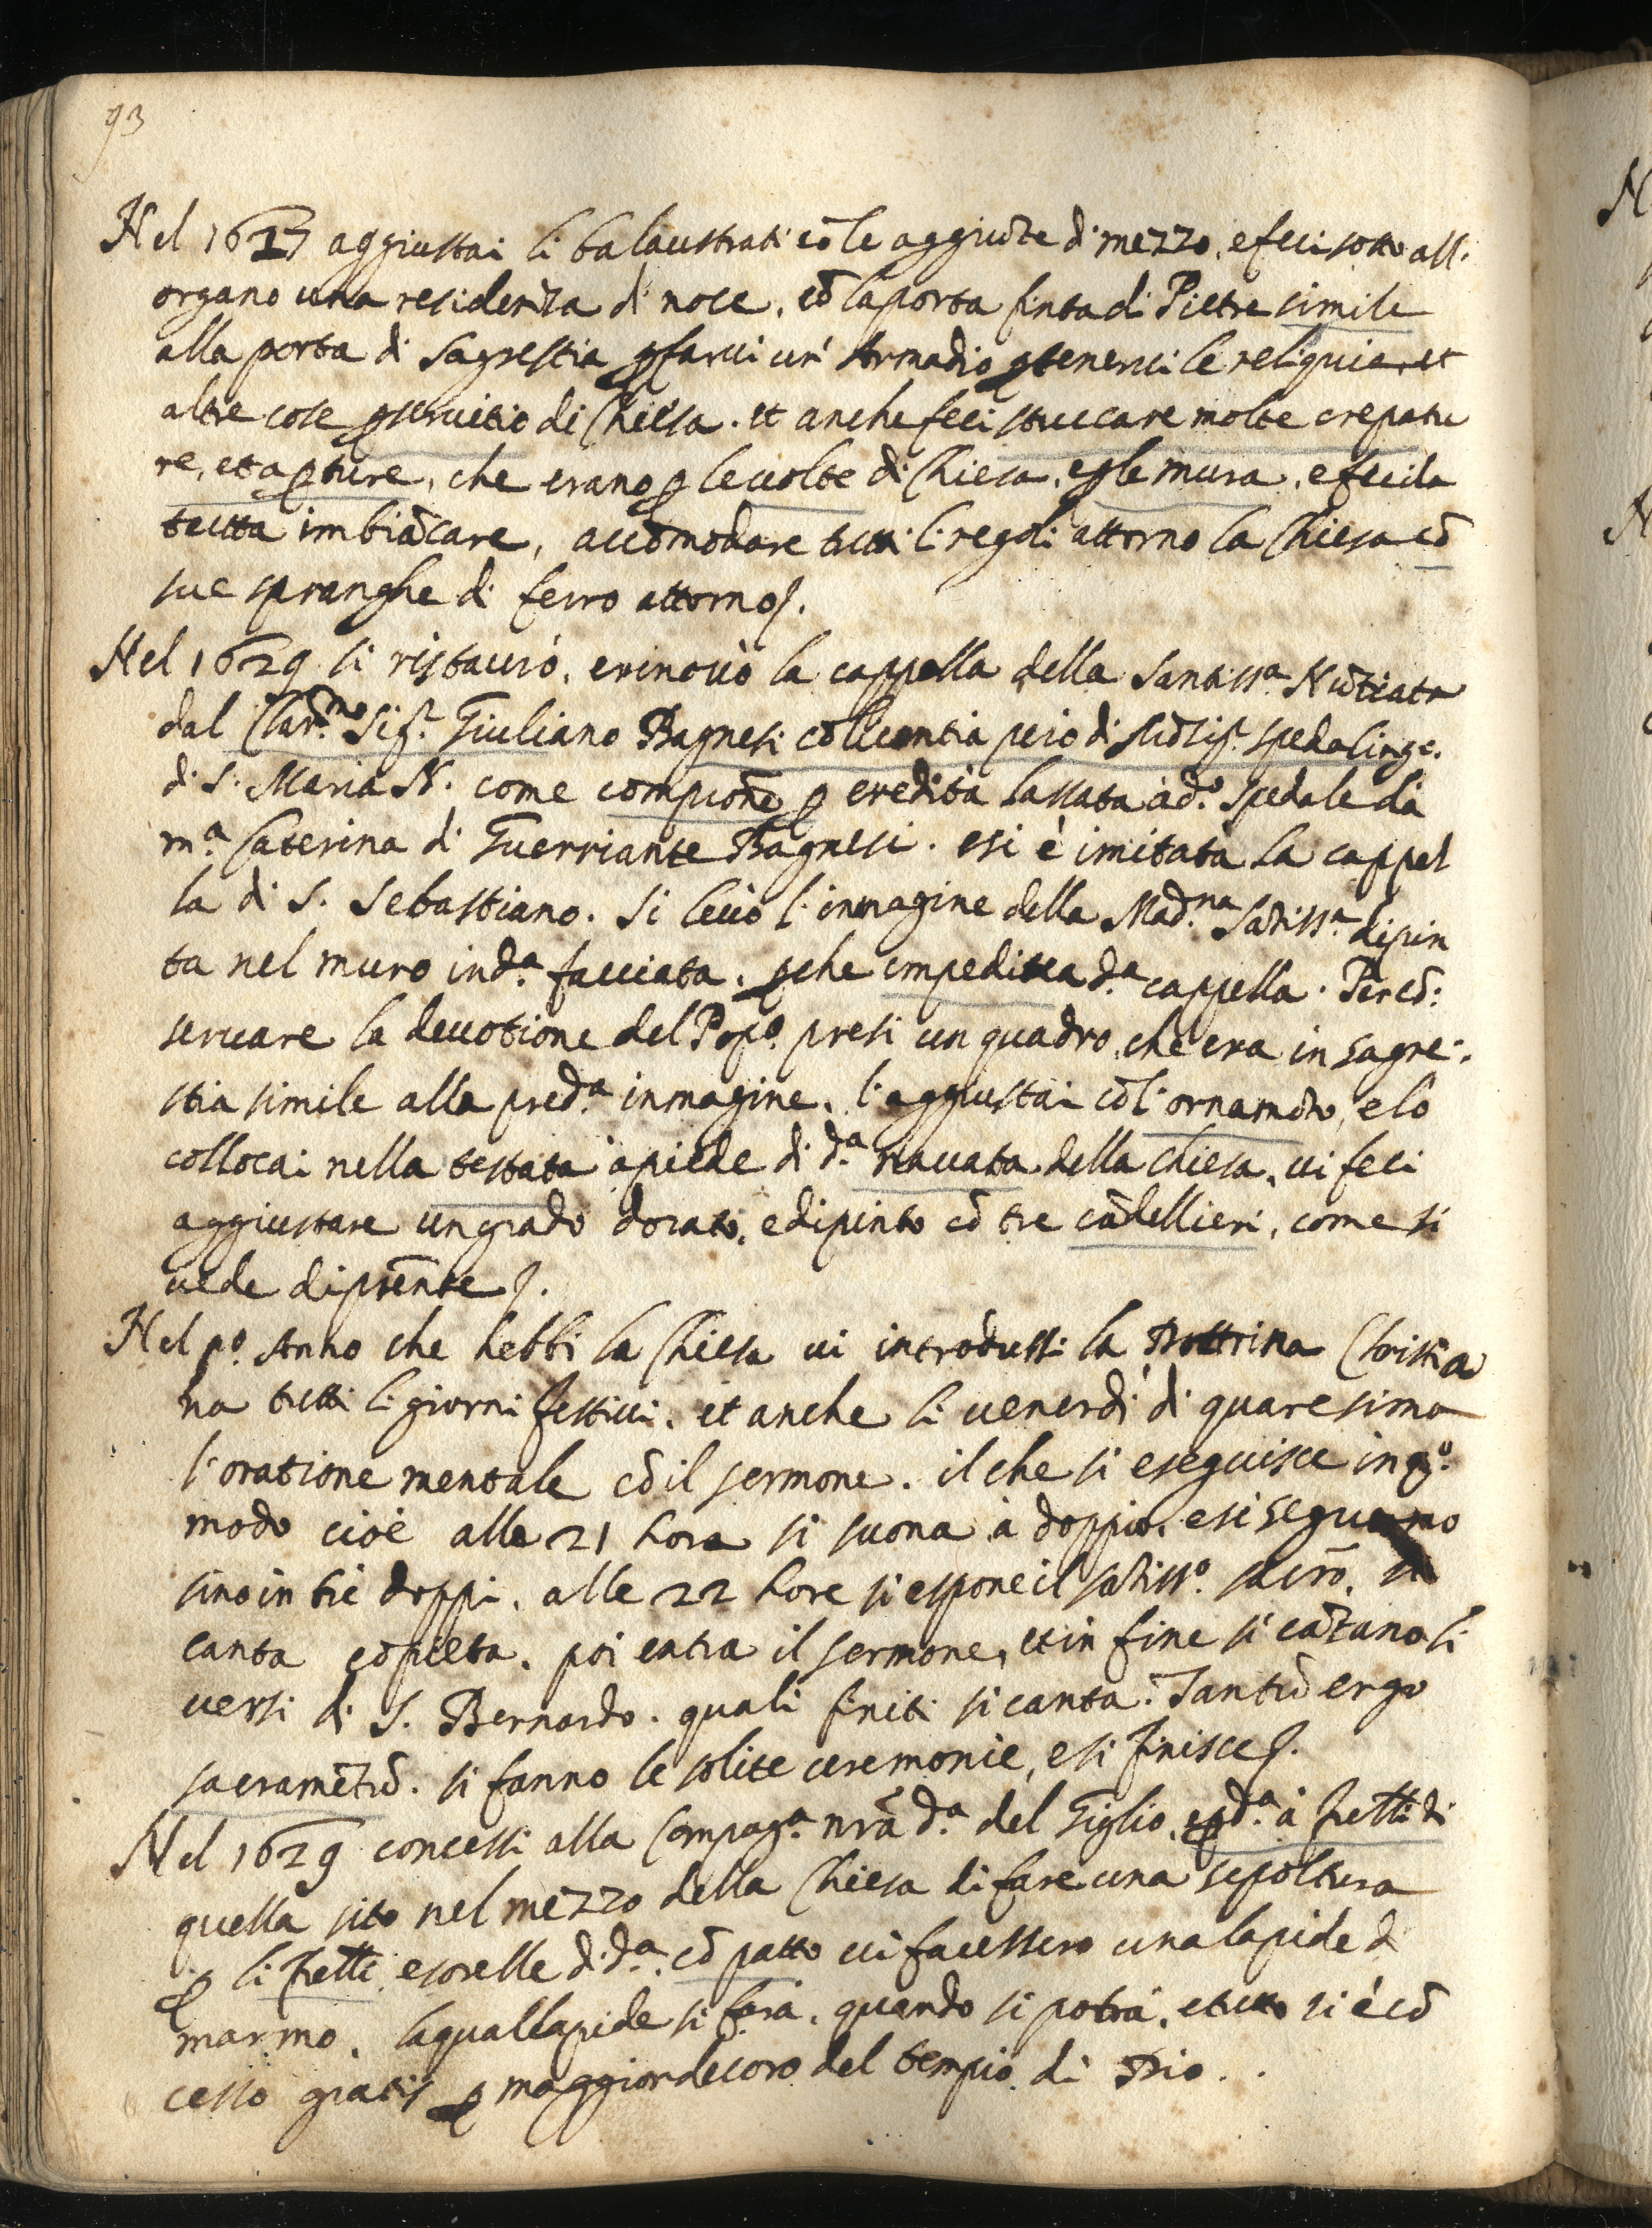 93
Nel 1627 aggiustai li balaustrati cō le aggiūte di mezzo, e feci sotto all'
organo una residenza di noce, cō la porta finta di Pietre simile
alla porta di Sagrestia ꝑ farvi un' Armadio ꝑ tenervi le reliquie, et
altre cose ꝑ servitio di Chiesa. et anche feci stuccare molte crepatu
re, et aꝑture, che erano ꝑ le volte di Chiesa, e ꝑ le mura, e fecila
tutta imbiācare, accōmodare tutti li regoli attorno la Chiesa cō
sue spranghe di ferro attorno.
Nel 1629 si ristaurò, e rinovò la cappella della Santiss.ª Nūtiata
dal Clar.mo Sig.r Giuliano Bagnesi cō licentia però di Sig.r spedalingo
di S. Maria N. come comprōne ꝑ eredità lassata à d.º spedale dà
m.ª Caterina di Guerriante Bagnesi. e si è imitata la cappel
la di S. Sebastiano. Si levò l'inmagine della Mad.na Sātiss.ª dipin
ta nel muro in d.ª facciata, ꝑche impediva d.ª cappella. Per cō:
servare la devotione del Pop.º presi un quadro, che era in sagre:
stia simile alla pred.ª inmagine, l'aggiustai cō l'ornamēto, e lo
collocai nella testata à piede di d.ª navata della Chiesa, vi feci
aggiustare un grado dorato, e dipinto cō tre cādellieri, come si
vede di prēnte.
Nel p.º Anno che hebbi la Chiesa vi introdussi la Dottrina Christia
na tutti li giorni festivi, et anche li venerdì di quaresima
l'oratione mentale cō il sermone. il che si eseguisce in q.º
modo cioè alle 21 hora si suona à doppio, e si segue
sino in tre doppi, alle 22 hore si espone il sātiss.º sacrō, si
canta cōpieta, poi entra il sermone, et in fine si cātano li
versi di S. Bernardo. quali finiti si canta. Tantū ergo
sacramētū. si fanno le solite ceremonie, e si finisce.
Nel 1629 concessi alla Compag.ª nrā d.ª del Giglio, e ꝑ d.ª à fretti di
quella sito nel mezzo della Chiesa di fare una sepoltura
ꝑ li fretti, e sorelle di d.ª, cō patto vi facessero una lapide di
marmo, la qual lapide si farà, quando si potrà, e tutto si è cō
cesso gratis ꝑ maggior decoro del tempio di Dio.